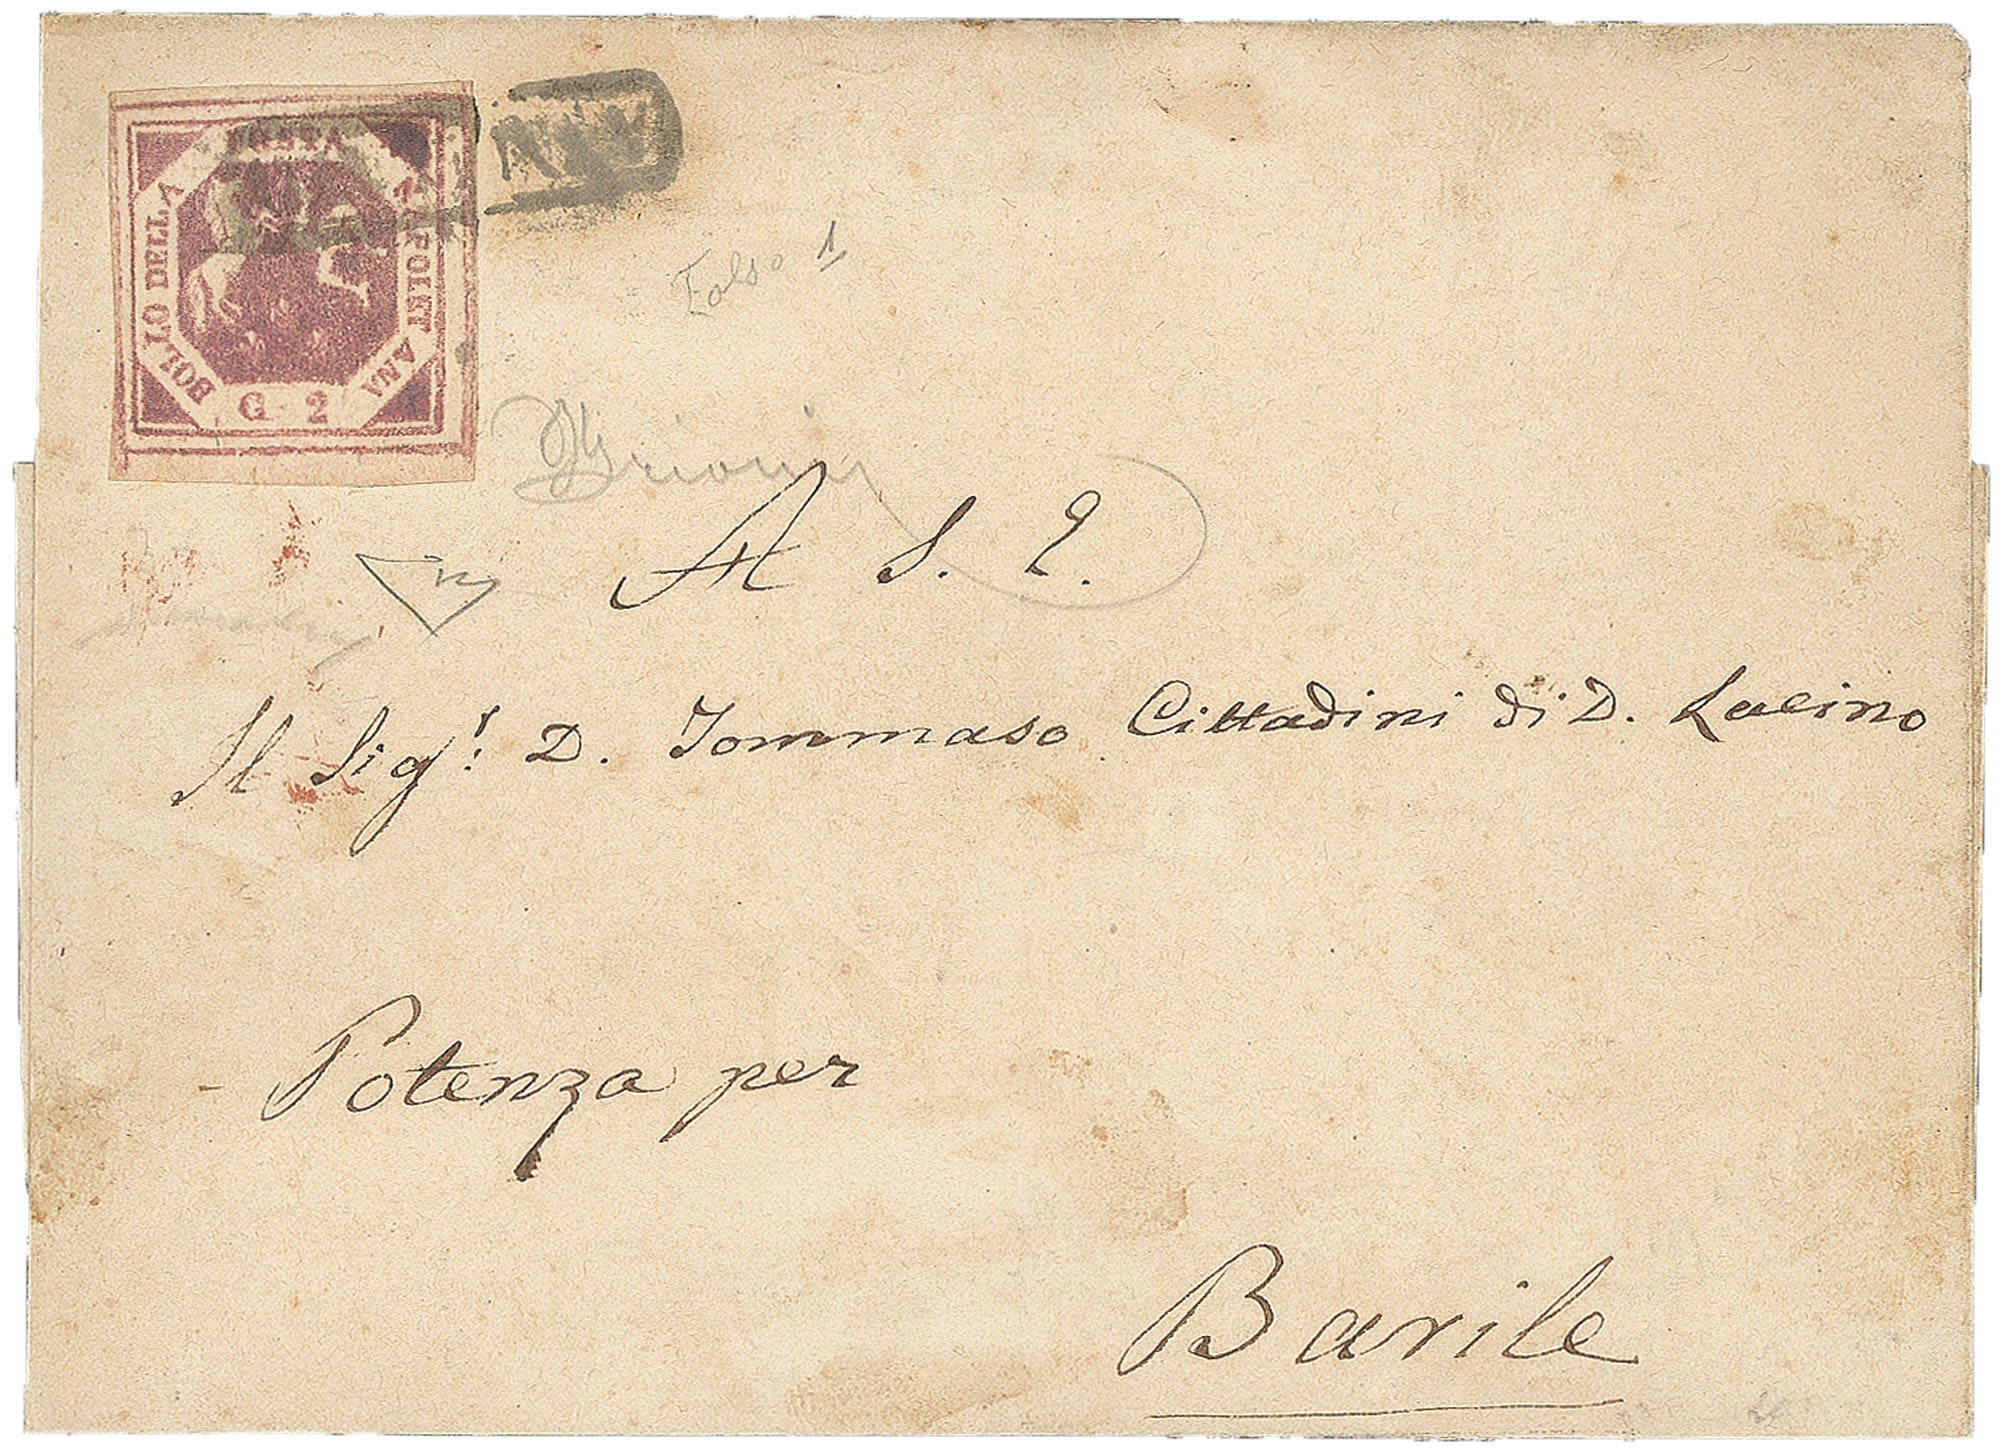 BOLLO DELLA
POSTA
NAPOLETANA
G 2
Falso 1
A S. E.
Il Sig.r D. Tommaso Cittadini di D. Lucino
Potenza per
Barile